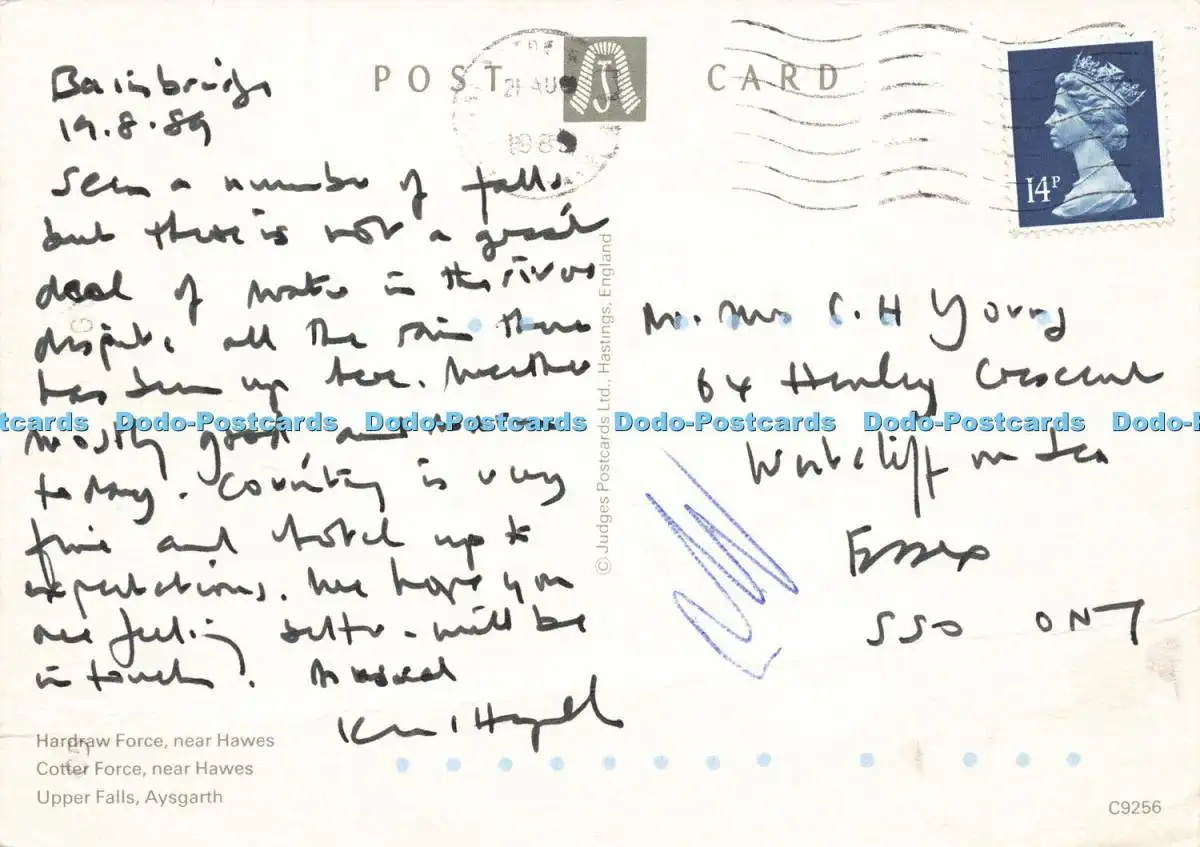 POST CARD
21 AUG
1989
14P
Bainbridge
19.8.89
Seen a number of falls
but there is not a great
deal of water in the rivers
despite all the rain there
has been up here. Weather
mostly good and
today. Country is very
fine and hotel up to
expectations. We hope you
are feeling better - will be
in touch.
Hardraw Force, near Hawes
Cotter Force, near Hawes
Upper Falls, Aysgarth
© Judges Postcards Ltd., Hastings, England
Mr. Mrs C.H Young
64 Henley Crescent
Westcliff on Sea
Essex
SSO ONT
C9256
Dodo-Postcards Dodo-Postcards Dodo-Postcards Dodo-Postcards